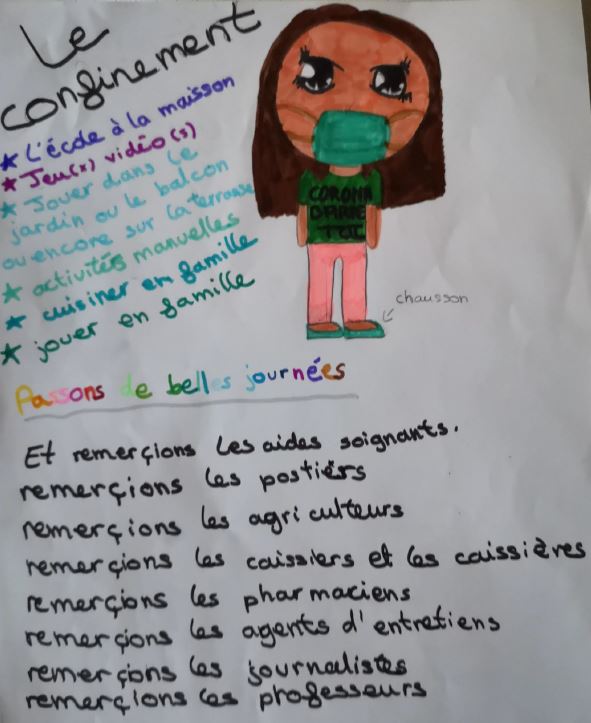 Le
confinement
★ L'école à la maisson
★ Jeu(x) vidéo(s)
★ Jouer dans le
jardin ou le balcon
ou encore sur la terrasse
★ activités manuelles
★ cuisiner en famille
★ jouer en famille
CORONA
BARRE
TOI
chausson
Passons de belles journées
Et remerçions les aides soignants.
remerçions les postiérs
remerçions les agriculteurs
remerçions les caissiers et les caissières
remerçions les pharmaciens
remerçions les agents d'entretiens
remerçions les journalistes
remerçions les professeurs